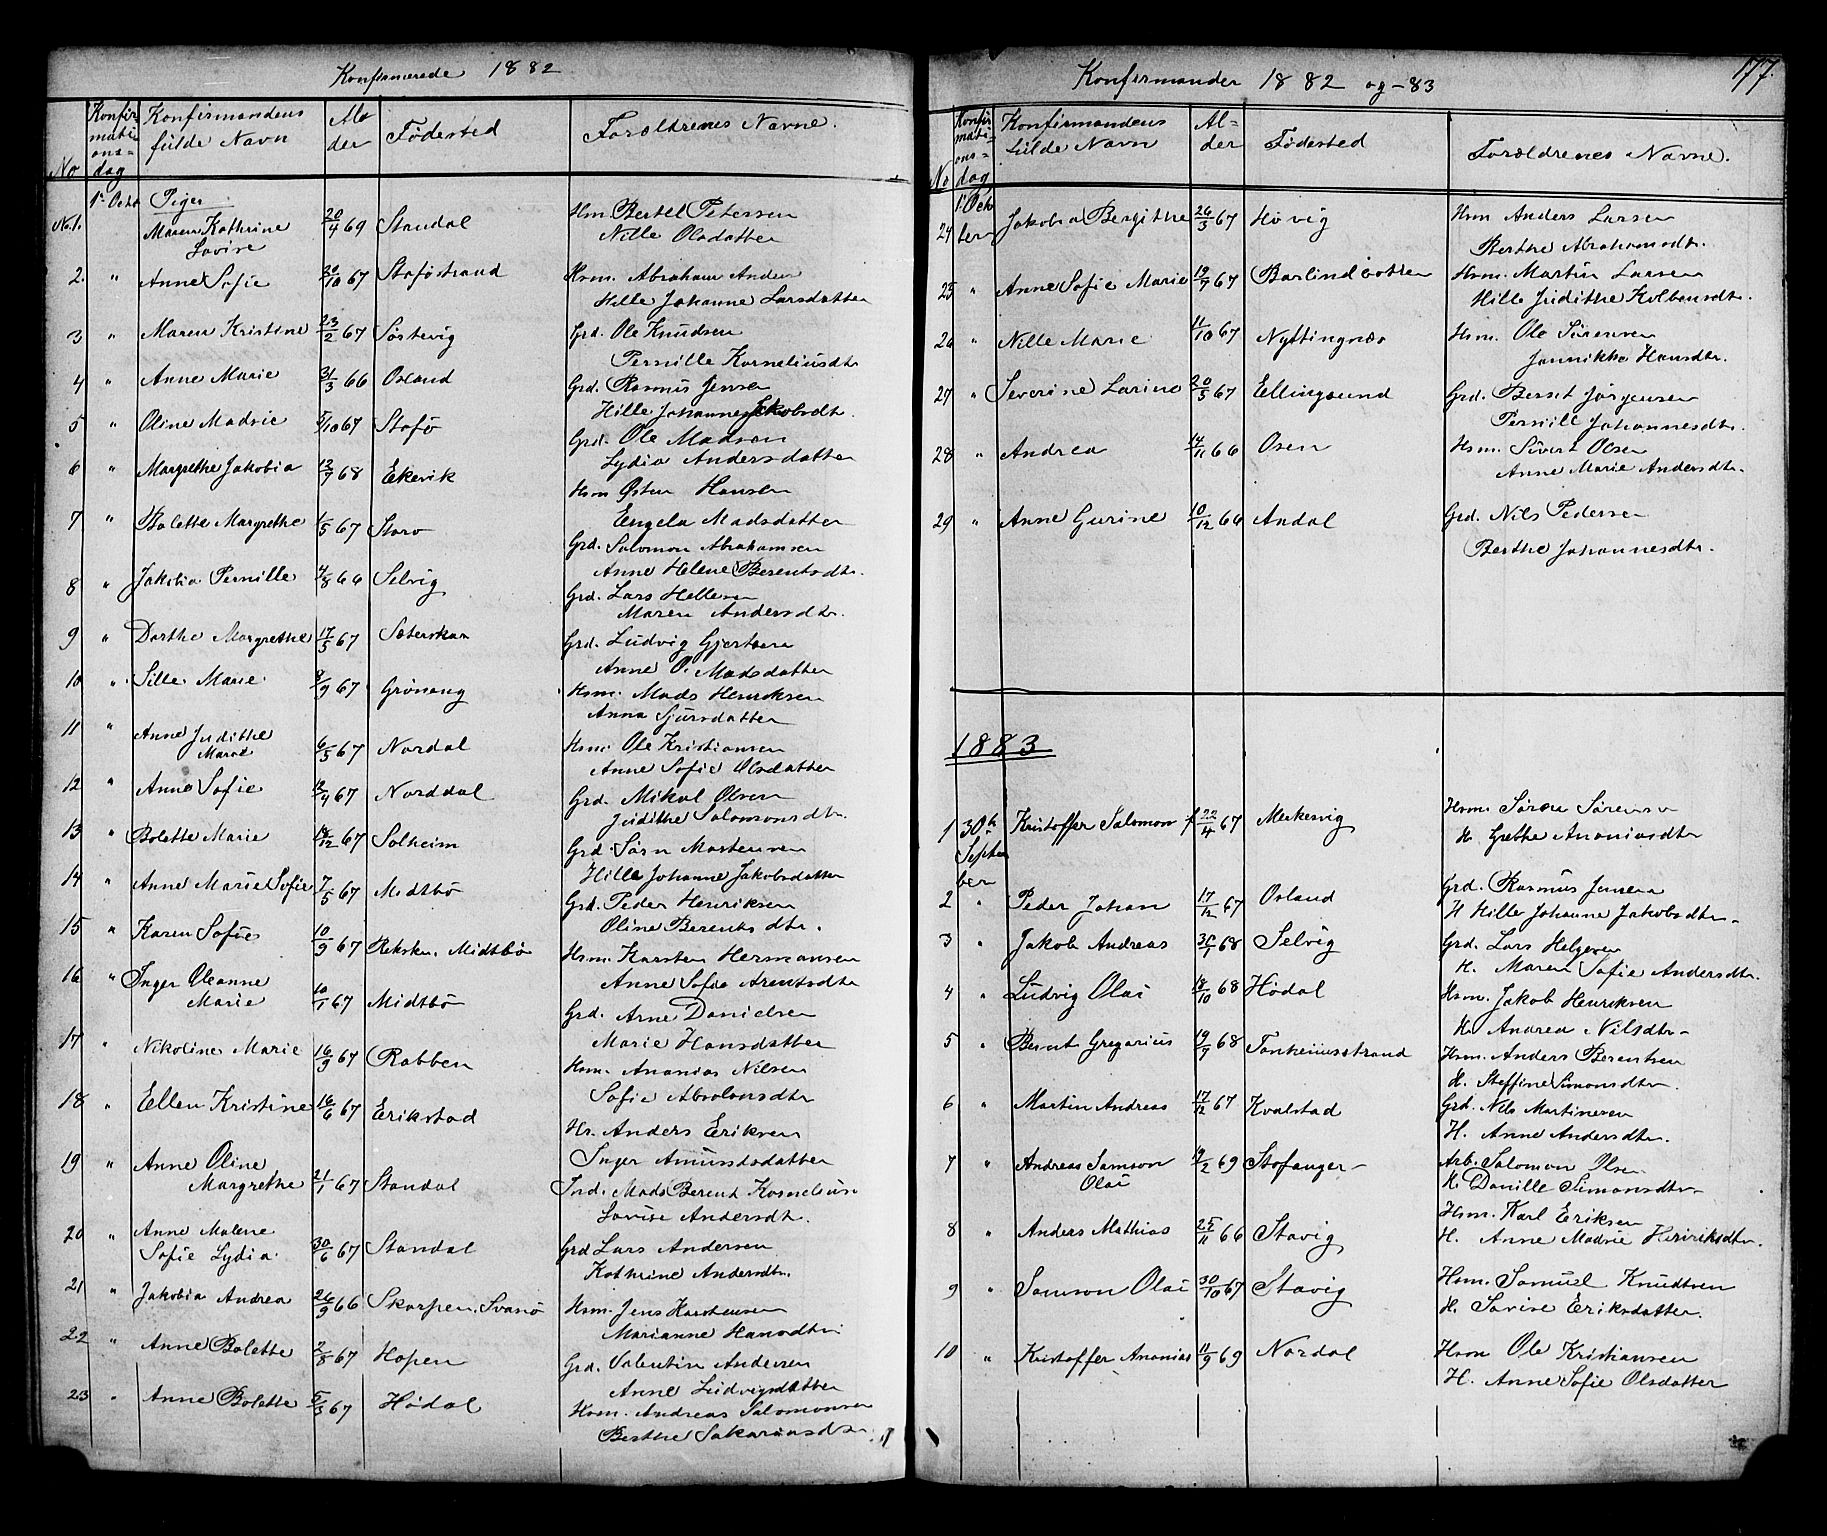 Konfirmerede 1882
No
Konfir
mati
ons=
dag
Konfirmandens
fulde Navn
Al
der
Fødested
Forældrenes Navne.
1ste Octo Piger
No.1. Maren Kathrine 20/4 69 Standal Hsm Bertel Petersen
Lovise Nille Olsdatter
2. " Anne Sofie 30/10 67 Stoføstrand Hsm. Abraham Anders
Hille Johanne Larsdatter
3 " Maren Kristine 23/2 67 Søstevig Grd. Ole Knudsen
Pernille Korneliusdt
4 " Anne Marie 31/3 66 Osland Grd. Rasmus Jensen
Hille Johanne Jakobsdt.
5 " Oline Madrie 5/10 67 Stofø Grd. Ole Madsen
Lydia Andersdatter
6 " Margrethe Jakobia 12/9 68 Ekevik Hsm Østen Hansen
Engela Madsdatter
7 " Bolette Margrethe 1/5 67 Staro Grd. Salomon Abrahamsen
Anne Helene Berentsdt.
8 " Jakobia Pernille 4/8 66 Selvig Grd. Lars Hellesen
Maren Andersdtr.
9 " Dorthe Margrethe 17/5 67 Sæterskar Grd. Ludvig Gjertsen
Anne O. Madsdatter
10 " Sille Marie 8/9 67 Grøneng Hsm. Mads Henriksen
Anna Sjursdatter
11 " Anne Judithe
Marie 6/5 67 Nordal Hsm. Ole Kristiansen
Anne Sofie Olsdatter
12 " Anne Sofie 12/4 67 Norddal Grd. Mikal Olsen
Judithe Salomonsdt.
13 " Bolette Marie 18/12 67 Solheim Grd. Sørn Mortensen
Hille Johanne Jakobsdatter
14 " Anne Marie Sofie 7/5 67 Midtbø Grd. Peder Henriksen
Oline Berentsdtr.
15 " Karen Sofie 10/9 67 Reksten. Midtbø Hsm. Karsten Hermansen
Anne Sofie Arentsdtr
16 " Inger Oleanne
Marie 10/1 67 Midtbø Grd. Arne Danielsen
Marie Hansdatter
17 " Nikoline Marie 16/9 67 Rabben Hsm. Ananias Nilsen
Sofie Absolonsdtr
18 " Ellen Kristine 16/6 67 Erikstad Hr. Anders Eriksen
Inger Amundsdatter
19 " Anne Oline
Margrethe 21/1 67 Standal Ind. Mads Berent Kornelius
Lovise Andersdt.
20 " Anne Malene
Sofie Lydia 30/6 67 Standal Grd Lars Andersen
Kathrine Andersdtr.
21 " Jakobia Andrea 26/9 66 Skorpen, Svanø Hsm. Jens Karstensen
Marianne Hansdtr
22 " Anne Bolette 2/8 67 Hopen Grd. Valentin Andersen
Anne Ludvigsdatter
23 " Anne Bolette 5/3 67 Hødal Hsm. Andreas Salomonsen
Berthe Sakariasdtr
177.
Konfirmander 1882 og -83
No
Konfir
mati=
ons=
dag
Konfirmandens
fulde Navn
Al=
der
Fødested
Forældrenes Navne.
1ste Octo
24 ber Jakobia Bergithe 26/3 67 Høvig Hsm Anders Larsen
Berthe Abrahamsdtr.
25 " Anne Sofie Marie 19/9 67 Barlindbotten Hsm. Martin Larsen
Hille Judithe Kolbensdtr.
26 " Nille Marie 11/10 67 Nyttingnæs Hsm. Ole Sørensen
Jannikke Hansdtr.
27 " Severine Larine 20/5 67 Ellingsund Grd. Bernt Jørgensen
Pernill Johannesdtr.
28 " Andrea 14/11 66 Osen Hsm. Sivert Olsen
Anne Marie Andersdtr.
29 " Anne Gurine 10/12 66 Andal Grd. Nils Pedersen
Berthe Johannesdtr.
1883
1 30te Kristoffer Salomon f 22/4 67 Meckevig Hsm. Søren Sørensen
Septem H. Grethe Ananiasdtr
ber
2 " Peder Johan 17/12 67 Osland Grd. Rasmus Jensen
H Hille Johanne Jakobsdtr
3 " Jakob Andreas 30/1 68 Selvig Grd. Lars Helgesen
H. Maren Sofie Andersdtr.
4 " Ludvig Olai 18/10 68 Hødal Hsm. Jakob Henriksen
H. Andrea Nilsdtr
5 " Bernt Gregorius 19/9 68 Tonheimsstrand Hsm. Anders Berentsen
H. Steffine Simonsdtr.
6 " Martin Andreas 17/12 67 Kvalstad Grd. Nils Martinesen
H. Anne Andersdtr.
7 " Andreas Samson
Olai 19/2 69 Stofanger Arb. Salomon Olsen
H. Danille Simonsdtr
8 " Anders Mathias 25/11 66 Stavig Hsm. Karl Eriksen
H. Anne Madrie Henriksdtr.
9 " Samson Olai 30/10 67 Stavig Hsm. Samuel Knudtsen
H. Lovise Eriksdatter.
10 " Kristoffer Ananias 11/9 69 Nordal Hsm Ole Kristiansen
H. Anne Sofie Olsdatter